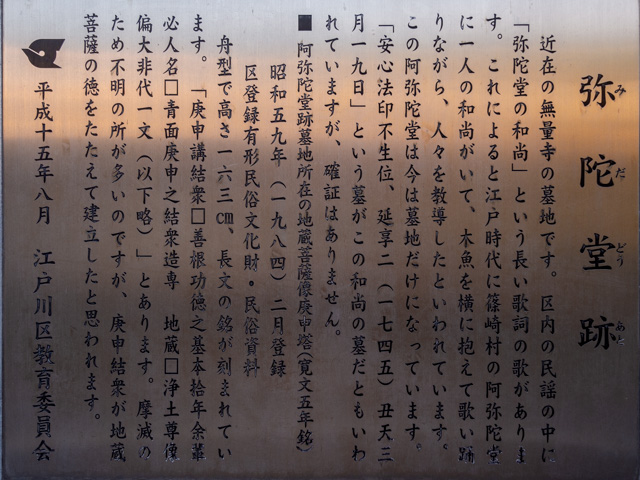 弥陀堂跡
みだどうあと
近在の無量寺の墓地です。区内の民謡の中に
「弥陀堂の和尚」という長い歌詞の歌がありま
す。これによると江戸時代に篠崎村の阿弥陀堂
に一人の和尚がいて、木魚を横に抱えて歌い踊
りながら、人々を教導したといわれています。
この阿弥陀堂は今は墓地だけになっています。
「安心法印不生位、延享二(一七四五)丑天三
月一九日」という墓がこの和尚の墓だともいわ
れていますが、確証はありません。
■阿弥陀堂跡墓地所在の地蔵菩薩像庚申塔(寛文五年銘)
昭和五九年(一九八四)二月登録
区登録有形民俗文化財・民俗資料
舟型で高さ一六三cm、長文の銘が刻まれてい
ます。「庚申講結衆□善根功徳之基本拾年余輩
必人名□青面庚申之結衆造専 地蔵□浄土尊像
偏大非代一文(以下略)」とあります。摩滅の
ため不明の所が多いのですが、庚申結衆が地蔵
菩薩の徳をたたえて建立したと思われます。
平成十五年八月 江戸川区教育委員会